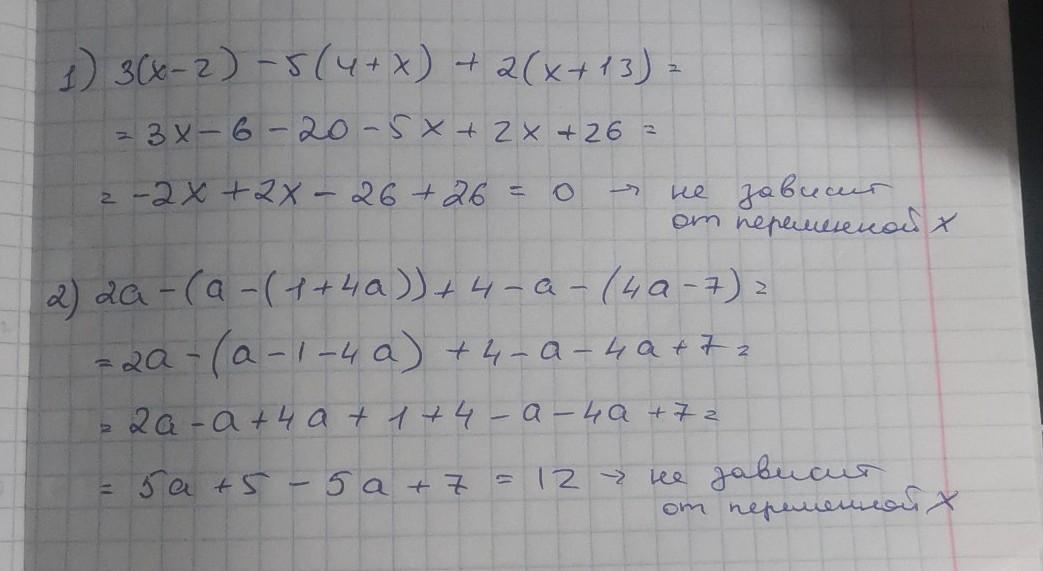 1) 3(x-2) -5(4+x) + 2(x+13) =
= 3x-6-20-5x+2x+26 =
= -2x+2x-26+26 = 0 → не зависит
от переменной x
2) 2a-(a-(1+4a))+4-a-(4a-7) =
= 2a-(a-1-4a) +4-a-4a+7 =
= 2a-a+4a+1+4-a-4a+7 =
= 5a+5-5a+7 = 12 → не зависит
от переменной x